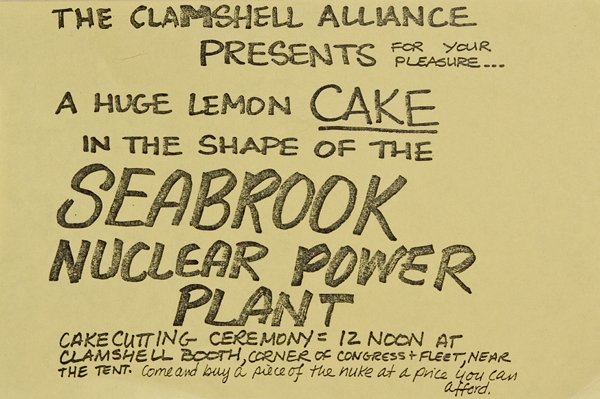 THE CLAMSHELL ALLIANCE
PRESENTS FOR YOUR PLEASURE...
A HUGE LEMON CAKE
IN THE SHAPE OF THE
SEABROOK
NUCLEAR POWER
PLANT
CAKECUTTING CEREMONY = 12 NOON AT
CLAMSHELL BOOTH, CORNER OF CONGRESS + FLEET, NEAR
THE TENT. Come and buy a piece of the nuke at a price you can
afford.